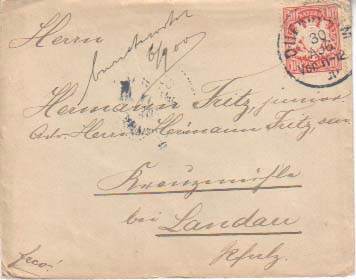 Herrn
6/9 00
Hermann Fritz, junior
Adr. Herrn Hermann Fritz, sen.
Kreuzmühle
bei Landau
Pfalz.
frco!
30
AUG